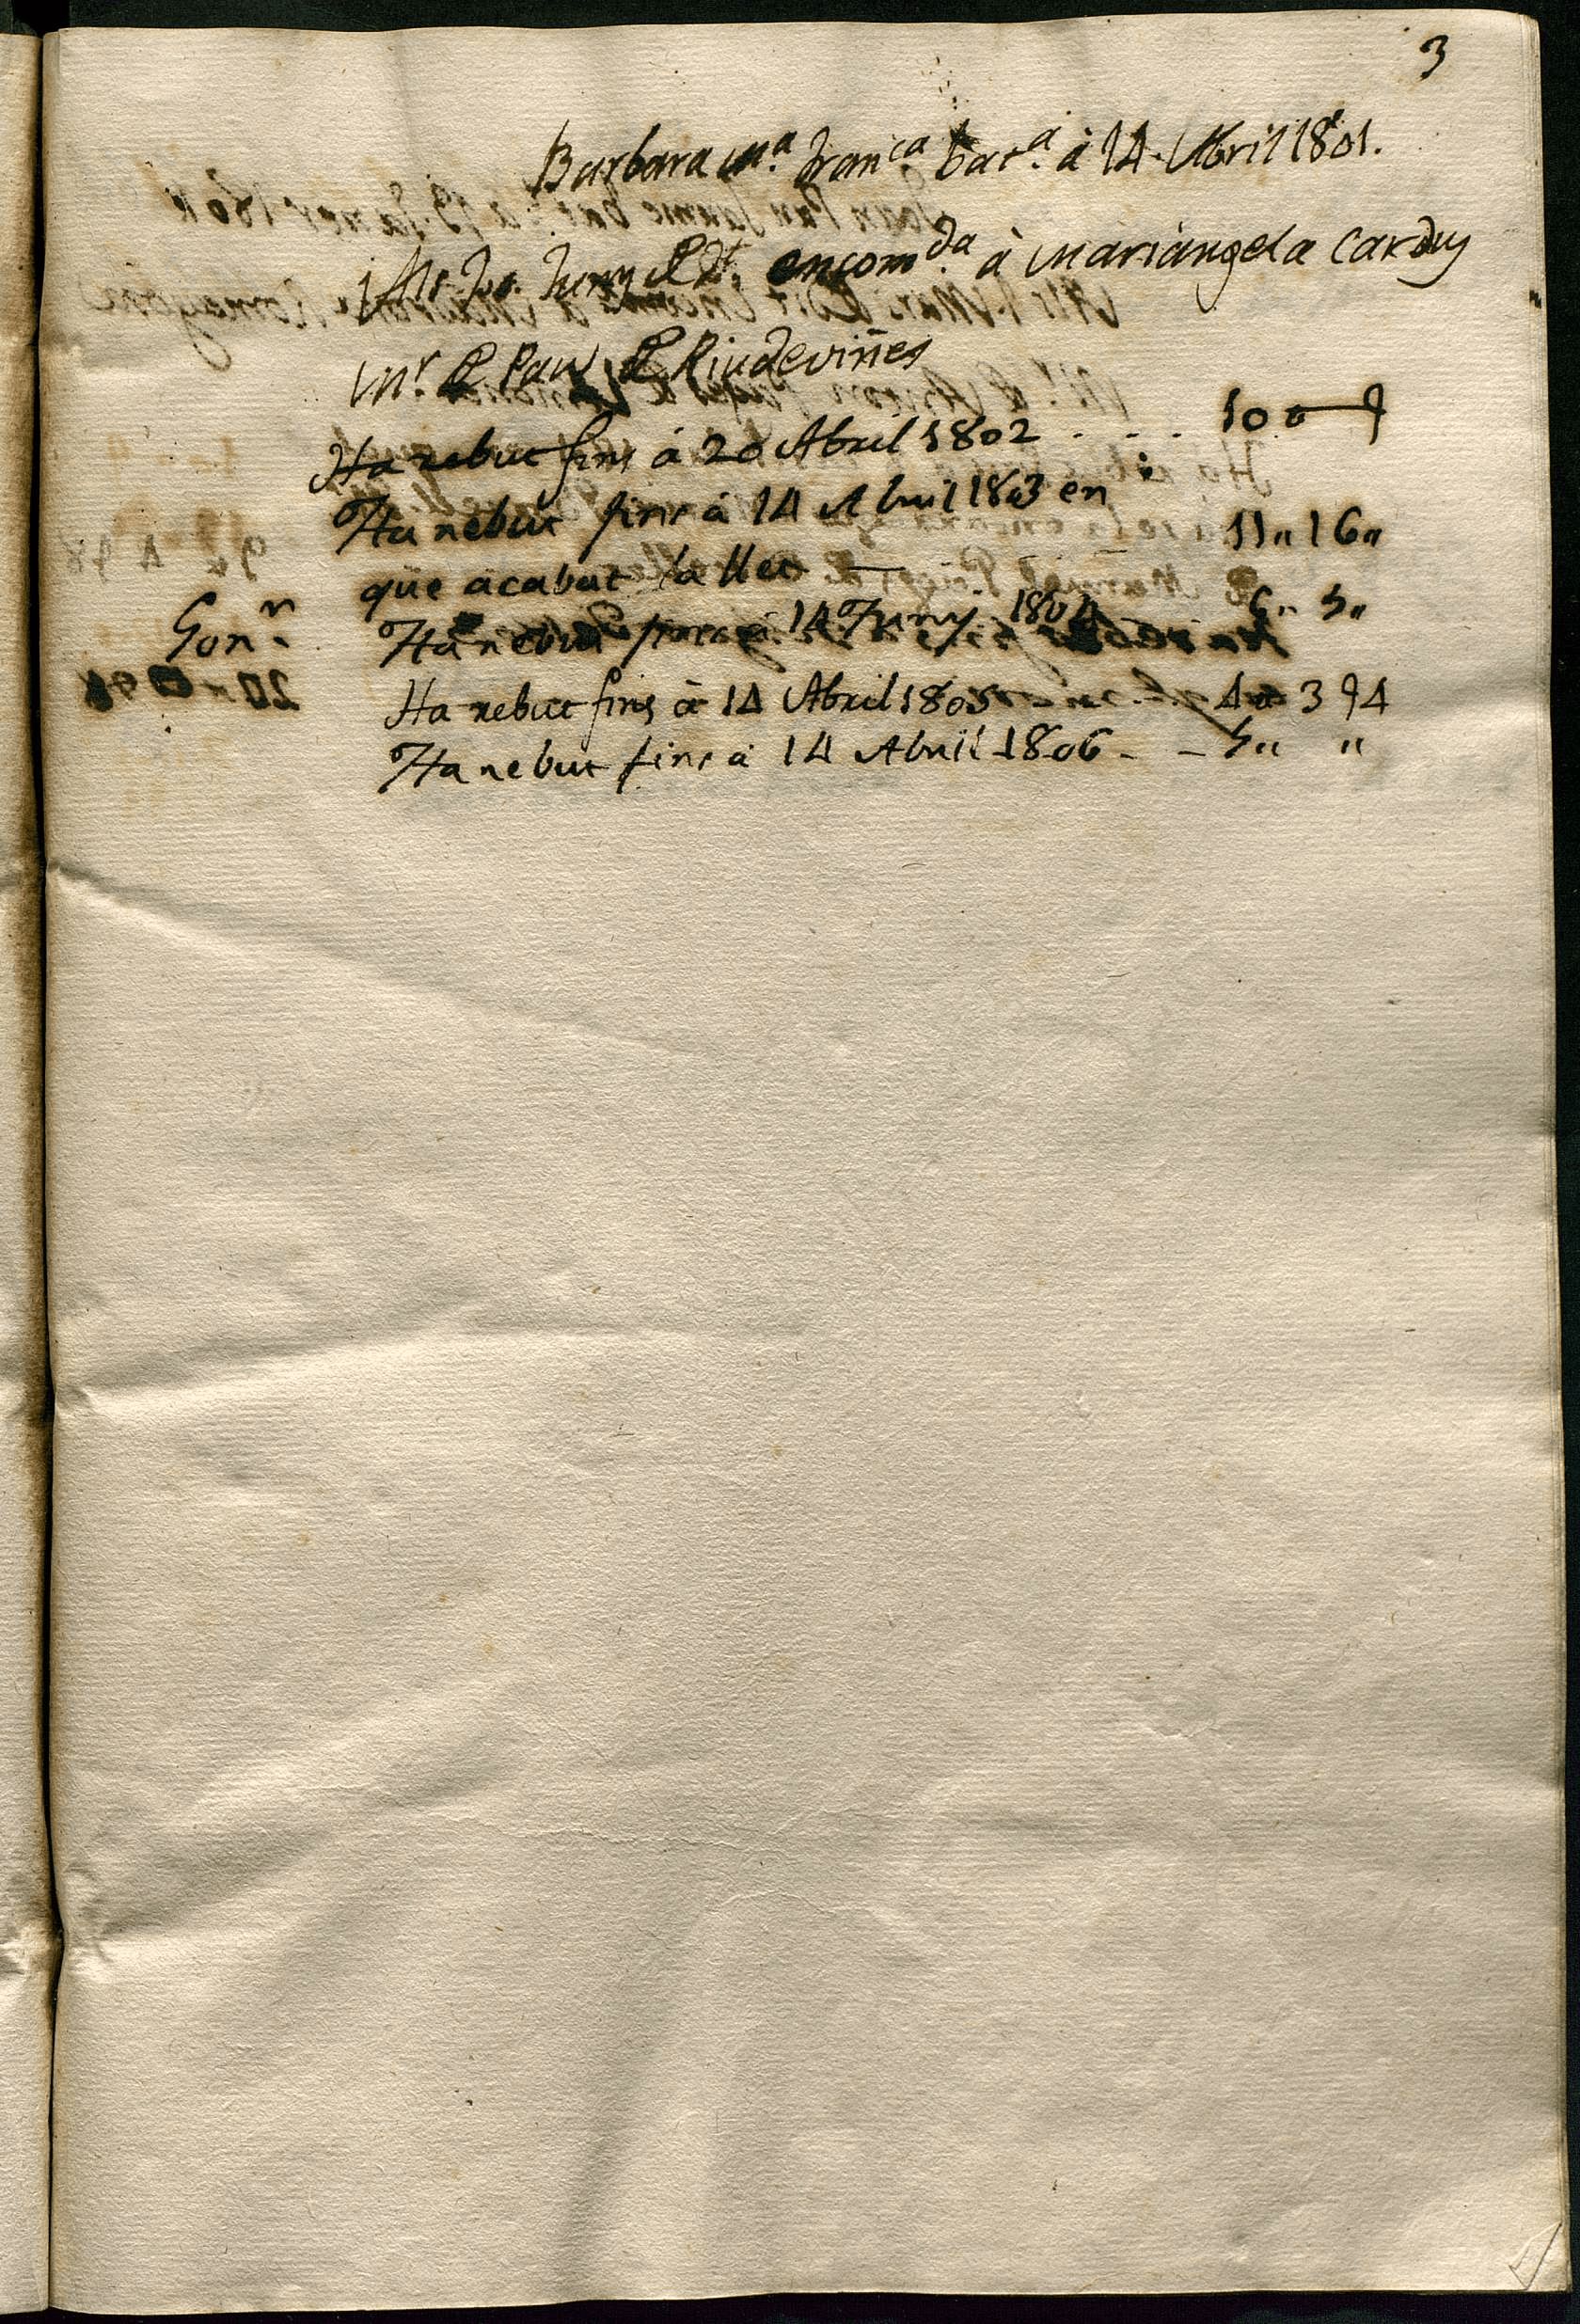 3
Barbara Mª Franca bat.ª à 14 Abril 1801.
encom.da à Mariangela Carduy
Mr. P Pau P Riudeviñes
Ha rebut fins à 20 Abril 1802 . . . 10
Ha rebut fins à 14 Abril 1803 en
que acabat la llet — 11,, 16,,
Gon.n Ha rebut fins à 14 Juny 1804 6,, 5,,
Ha rebut fins à 14 Abril 1805 4,, 3 94
Ha rebut fins à 14 Abril 1806 - - 5,, ,,